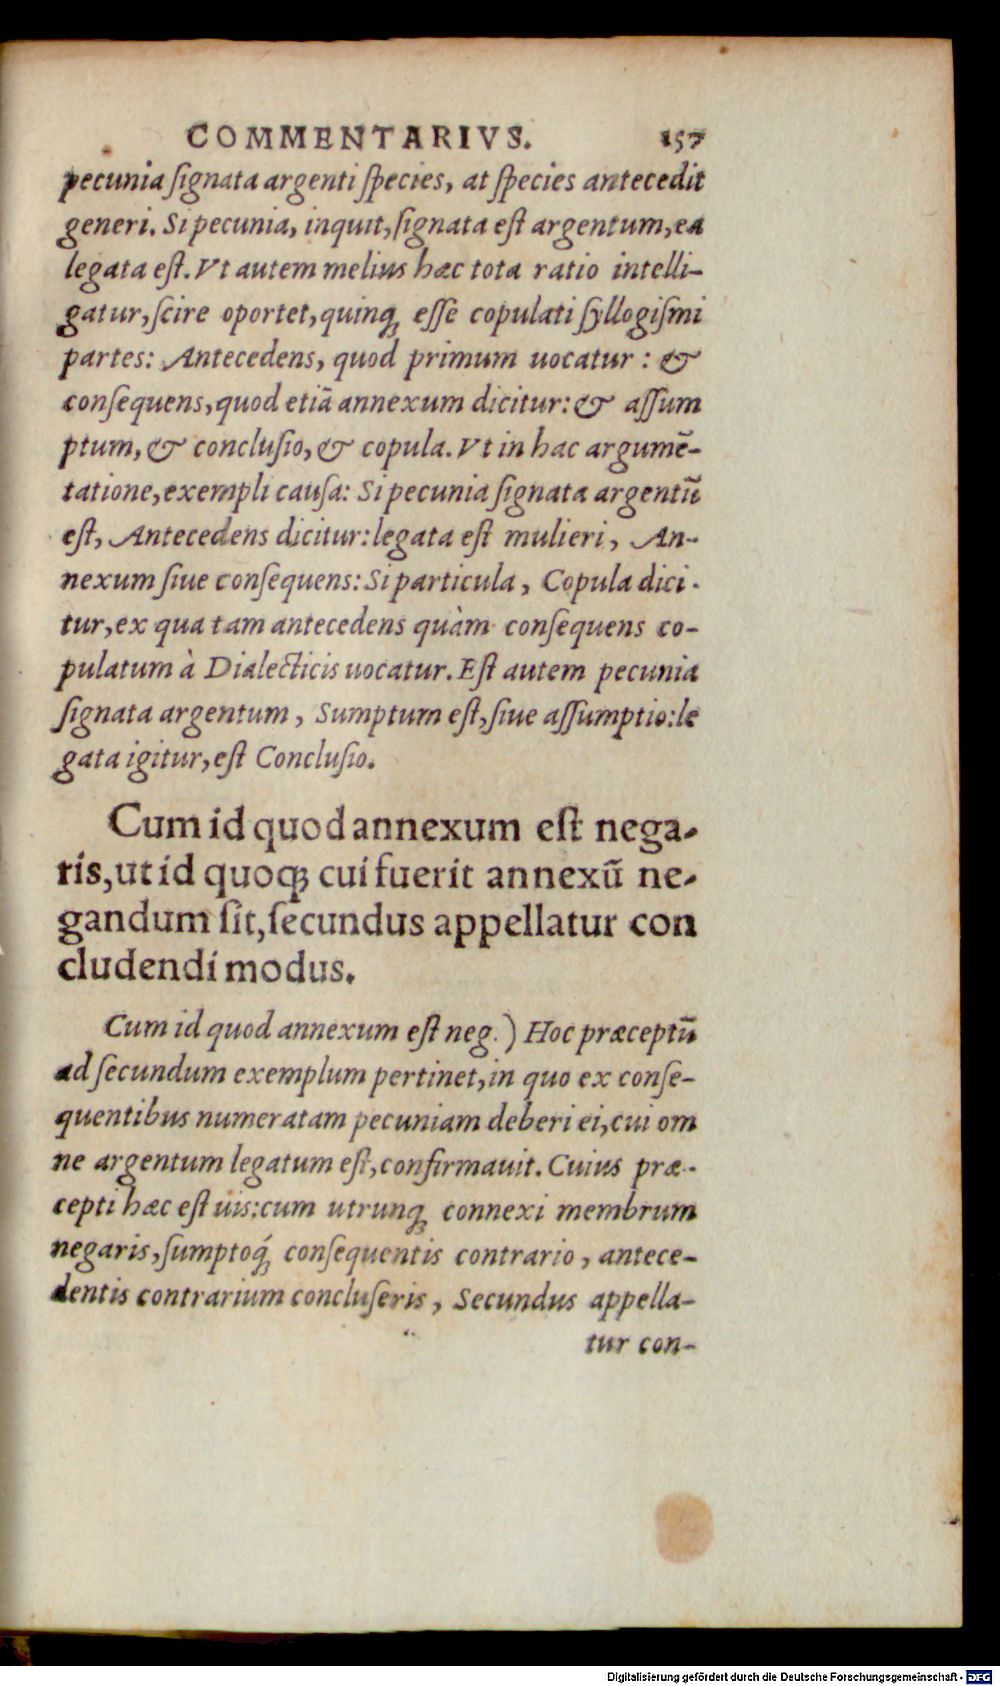 COMMENTARIVS. 157
pecunia ſignata argenti ſpecies, at ſpecies antecedit
generi. Si pecunia, inquit, ſignata eſt argentum, ea
legata eſt. Vt autem melius hæc tota ratio intelli-
gatur, ſcire oportet, quinqꝫ eſſe copulati ſyllogiſmi
partes: Antecedens, quod primum uocatur: &
conſequens, quod etiã annexum dicitur: & aſſum
ptum, & concluſio, & copula. Vt in hac argumẽ-
tatione, exempli cauſa: Si pecunia ſignata argentũ
eſt, Antecedens dicitur: legata eſt mulieri, An-
nexum ſiue conſequens: Si particula, Copula dici-
tur, ex qua tam antecedens quàm conſequens co-
pulatum à Dialecticis uocatur. Eſt autem pecunia
ſignata argentum, Sumptum eſt, ſiue aſſumptio: le
gata igitur, eſt Concluſio.
Cum id quod annexum eſt nega-
ris, ut id quoqꝫ cui fuerit annexũ ne-
gandum ſit, ſecundus appellatur con
cludendi modus.
Cum id quod annexum eſt neg.) Hoc præceptũ
ad ſecundum exemplum pertinet, in quo ex conſe-
quentibus numeratam pecuniam deberi ei, cui om
ne argentum legatum eſt, confirmauit. Cuius præ-
cepti hæc eſt uis: cum utrunqꝫ connexi membrum
negaris, ſumptoqꝫ́ conſequentis contrario, antece-
dentis contrarium concluſeris, Secundus appella-
tur con-
Digitalisierung gefördert durch die Deutsche Forschungsgemeinschaft - DFG